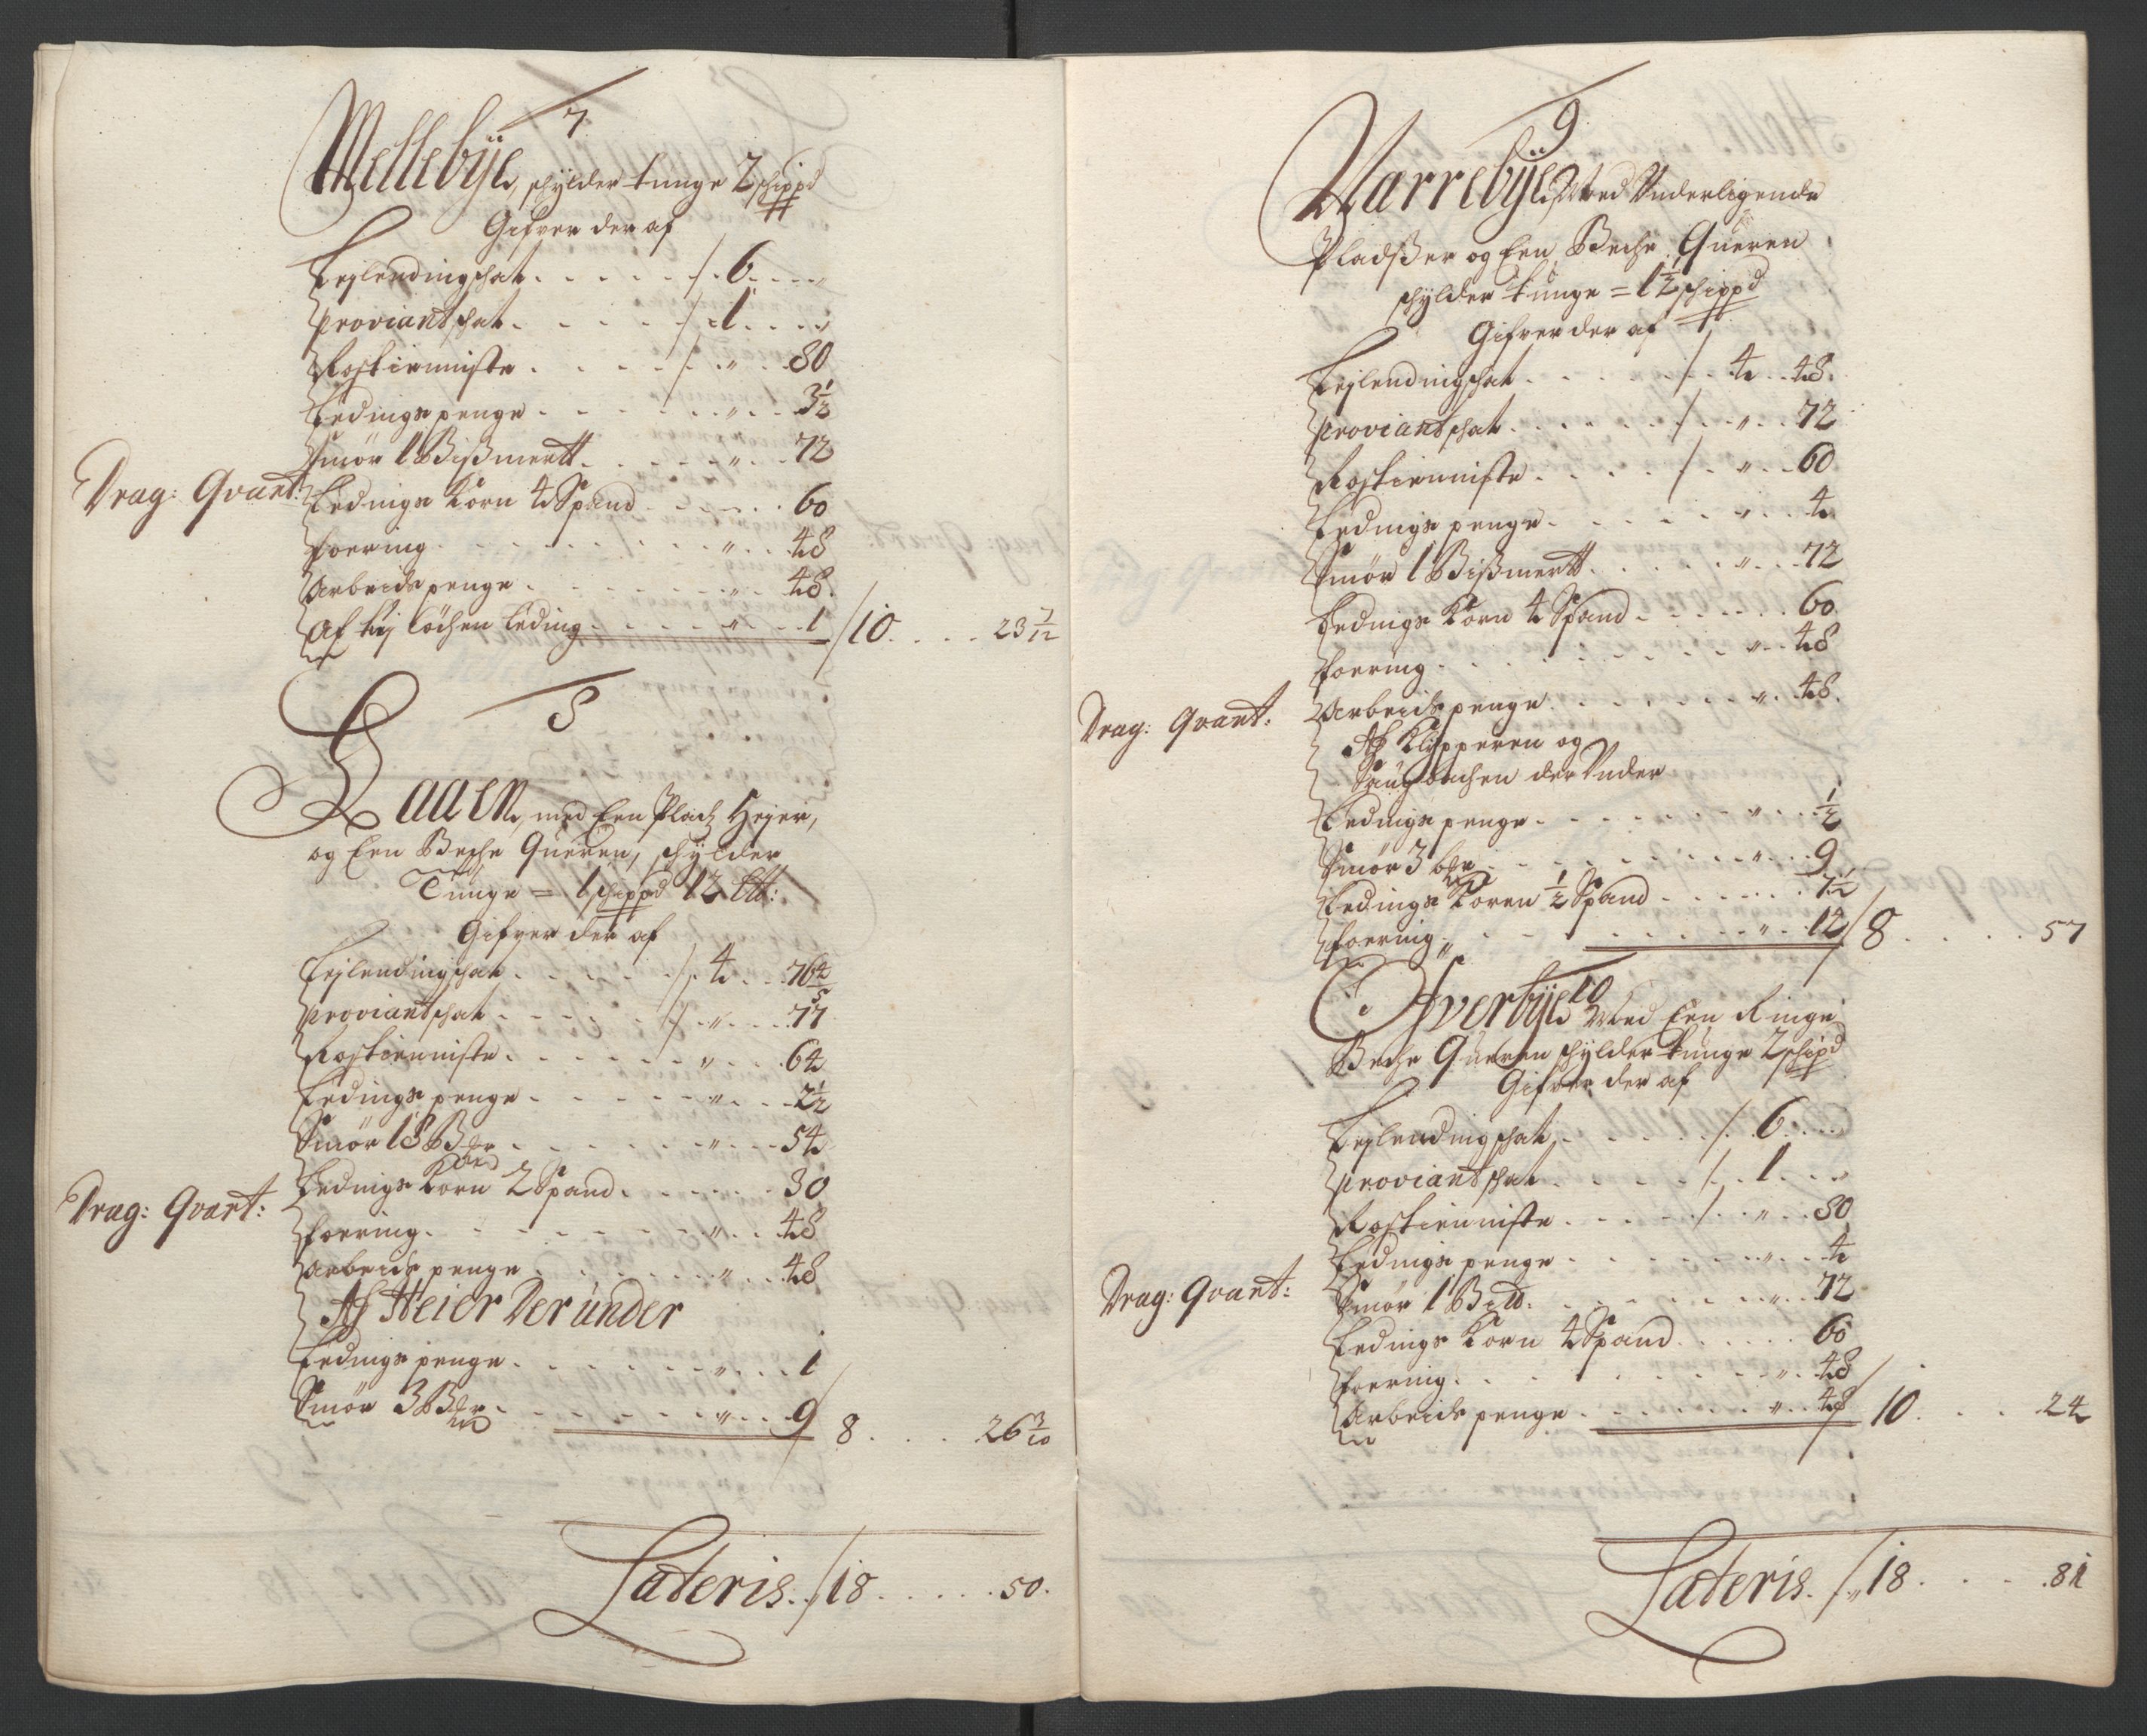 7
Mellebÿe, schylder tunge 2 schippd
Gifver der af
Lejlendingschat . . . . . /. 6 . . . „
Proviantschat . . . . /. 1 . . . „
Rostienniste . . . . /. „ . . 80
Ledings penge . . . . . „ . . 3½
Smör 1 Bißmertt . . . . „ . . 72
Drag: Qvart: Ledings Korn 4 Spand . . . . . 60
foering . . . . . . „ . . 48
Arbeids penge . . . . . „ . . 48.
Af tej löchen Leding . . . . „ . . 1 /10 . . . . 23 7/12
8
Haaen, med Een Plads Hejer,
og Een Beche Queren, schylder
Tunge = 1 schippd 12 Ltt:
Gifver der af
Lejlendingschat . . . . . /. 4 . . 76⅘
Proviantschat . . . . . /. „ . . 77
Rostienniste . . . . . . „ . . 64
Ledings penge . . . . . „ . . 2½
Smör 18 Bmr . . . . . „ . . 54
Drag: Qvart: Ledings Korn 2 Spand . . . . . 30
foering . . . . . . „ . . 48
Arbeids penge . . . . . „ . . 48
Af Heier Derunder
Ledings penge . . . . . . „ . . 1
Smör 3 Bmr . . . . . . „ . . 9 / 8 . . . . 26 3/10
Lateris . /18 . . . . . 50.
9
Narrebÿe, Med Underligende
Pladßer og Een Beche Queren
schylder tunge = 1½ schippd
Gifver der af
Lejlendingschat . . . . . /. 4 . . 48.
Proviantschat . . . . . /. „ . . 72
Rostienniste . . . . /. „ . . 60
Ledings penge . . . . . „ . . 4
Smör 1 Bißmertt . . . . . „ . . 72
Ledings Korn 4 Spand . . . . . 60.
foering . . . . . . . „ . . 48
Drag: Qvart: Arbeids penge . . . . . „ . 48.
Af Klopperen og
der Under
Ledings penge . . . . . . „ . . ½
Smör 3 bmr . . . . . . „ . . 9
Ledings Koren ½ Spand . . . . . 7½
foering . . . . . . . „ . . 12 / 8 . . . . 57
10
Ofverbÿe Med Een Ringe
Beche Queren schylder tunge 2 schipd
Gifver der af
Lejlendingschat . . . . . /. 6 . . .
Proviantschat . . . . . /. 1 . . „
Rostienniste . . . . . /. „ . . 80
Ledings penge . . . . . . „ . . 4
Drag: Qvart: Smör 1 Bmtt . . . . . . „ . . 72
Ledings Korn 4 Spand . . . . . 60
foering . . . . . . . „ . . 48
Arbeids penge . . . . . . „ . . 48 / 10 . . . . 24
Lateris . /„ 18 . . . . 81